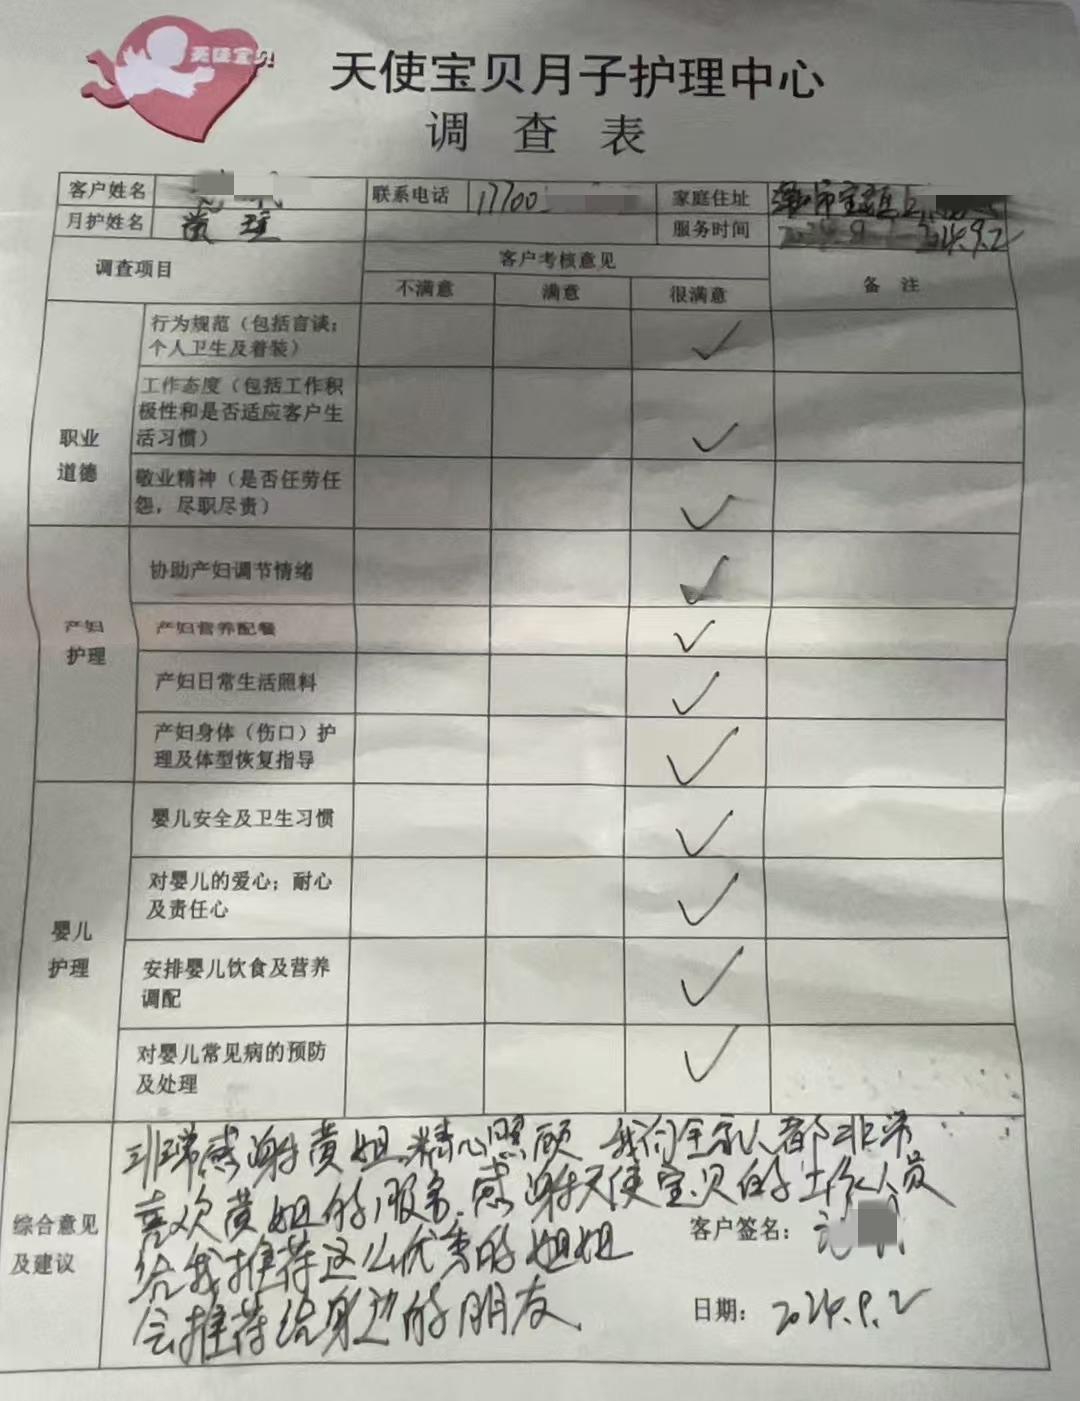 天使宝贝
天使宝贝月子护理中心
调查表
客户姓名
联系电话 17700
家庭住址
月护姓名 黄
服务时间 2024.9.2
调查项目
客户考核意见
备 注
不满意 满意 很满意
职业
道德
行为规范（包括言谈；
个人卫生及着装）
✓
工作态度（包括工作积
极性和是否适应客户生
活习惯）
✓
敬业精神（是否任劳任
怨，尽职尽责）
✓
产妇
护理
协助产妇调节情绪 ✓
产妇营养配餐 ✓
产妇日常生活照料 ✓
产妇身体（伤口）护
理及体型恢复指导
✓
婴儿
护理
婴儿安全及卫生习惯 ✓
对婴儿的爱心；耐心
及责任心
✓
安排婴儿饮食及营养
调配
✓
对婴儿常见病的预防
及处理
✓
综合意见
及建议
非常感谢黄姐精心照顾 我们全家人都非常
喜欢黄姐的服务.感谢天使宝贝的工作人员
给我推荐这么优秀的姐姐
会推荐给身边的朋友.
客户签名：
日期： 2024.9.2